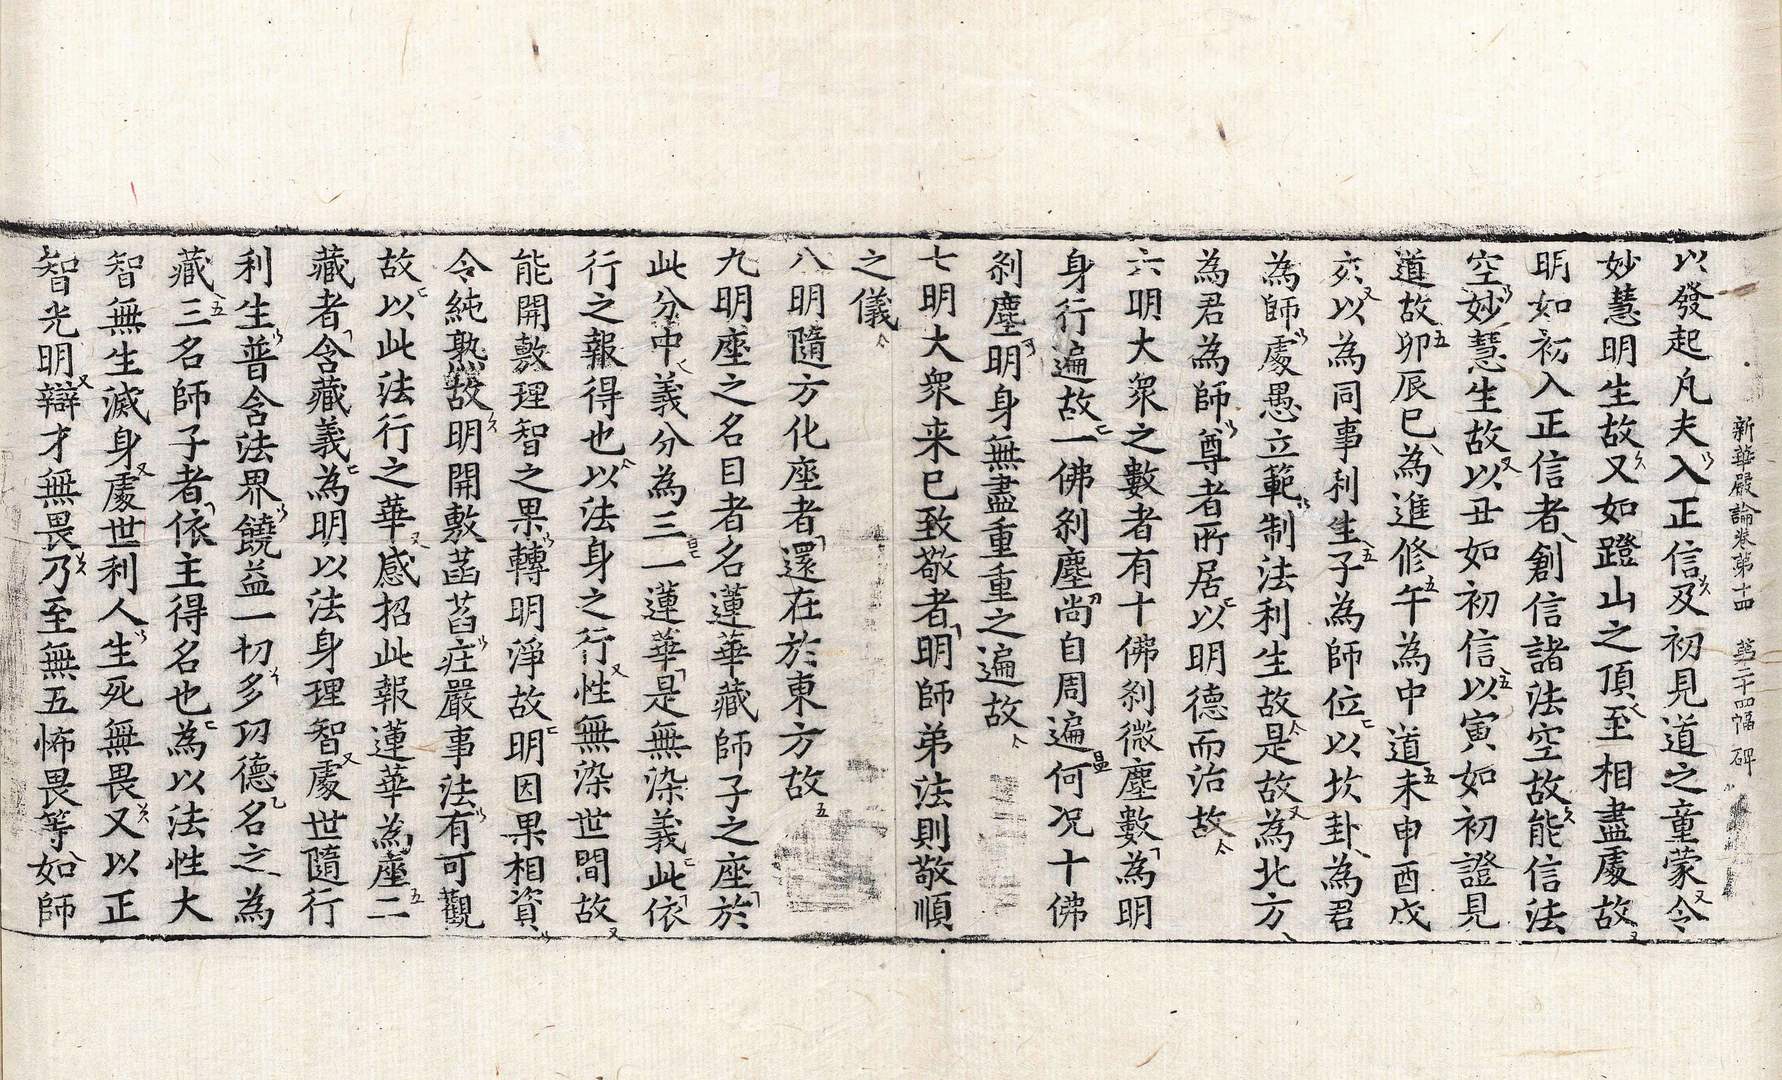 新華嚴論卷第十四　第二十四幅　碑
以發起凡夫入正信及初見道之童蒙令
妙慧明生故又如蹬山之頂至相盡處故
明如初入正信者創信諸法空故能信法
空妙慧生故以丑如初信以寅如初證見
道故卯辰巳為進修午為中道未申酉戌
亥以為同事利生子為師位以坎卦為君
為師處愚立範制法利生故是故為北方
為君為師尊者所居以明德而治故
六明大眾之數者有十佛剎微塵數為明
身行遍故一佛剎塵尚自周遍何況十佛
剎塵明身無盡重重之遍故
七明大眾来已致敬者明師弟法則敬順
之儀
八明隨方化座者還在於東方故
九明座之名目者名蓮華藏師子之座於
此分中義分為三一蓮華是無染義此依
行之報得也以法身之行性無染世間故
能開敷理智之果轉明淨故明因果相資
令純熟故明開敷菡萏莊嚴事法有可觀
故以此法行之華感招此報蓮華為座二
藏者含藏義為明以法身理智處世隨行
利生普含法界饒益一切多功德名之為
藏三名師子者依主得名也為以法性大
智無生滅身處世利人生死無畏又以正
智光明辯才無畏乃至無五怖畏等如師